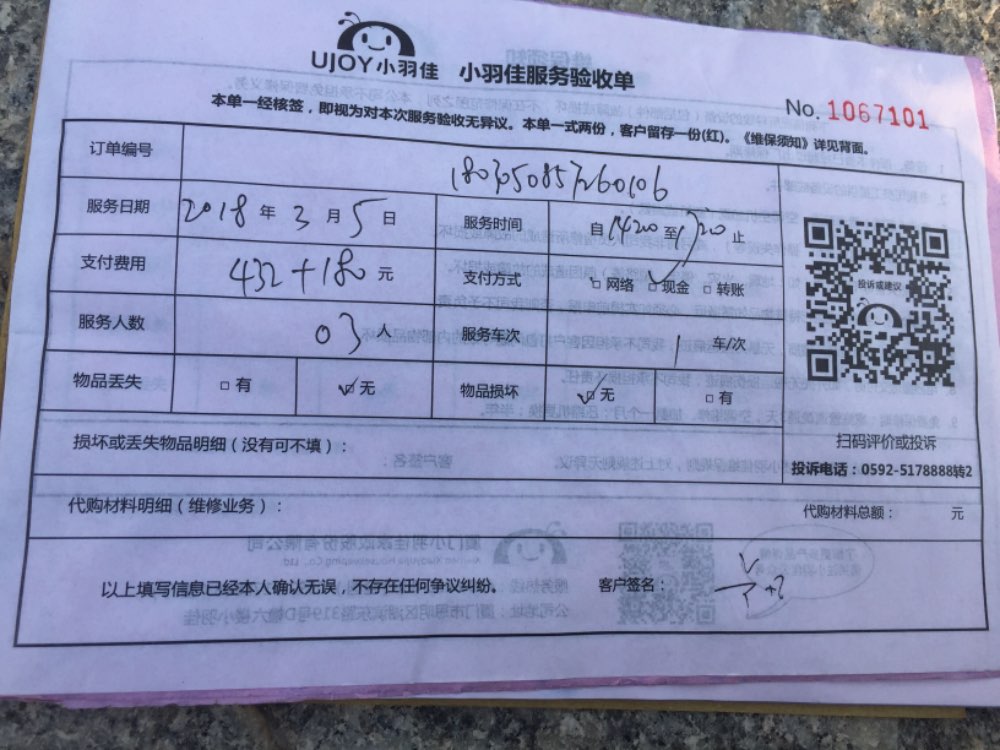 UJOY小羽佳 小羽佳服务验收单
No. 1067101
本单一经核签，即视为对本次服务验收无异议。本单一式两份，客户留存一份(红)。《维保须知》详见背面。
订单编号
服务日期 2018年3月5日 服务时间 自1420至1720止
支付费用 432+180元 支付方式 □网络 ☑现金 □转账
投诉或建议
服务人数 03人 服务车次 1车/次
物品丢失 □有 ☑无 物品损坏 ☑无 □有
损坏或丢失物品明细（没有可不填）：
扫码评价或投诉
投诉电话：0592-5178888转2
代购材料明细（维修业务）： 代购材料总额： 元
以上填写信息已经本人确认无误，不存在任何争议纠纷。 客户签名：